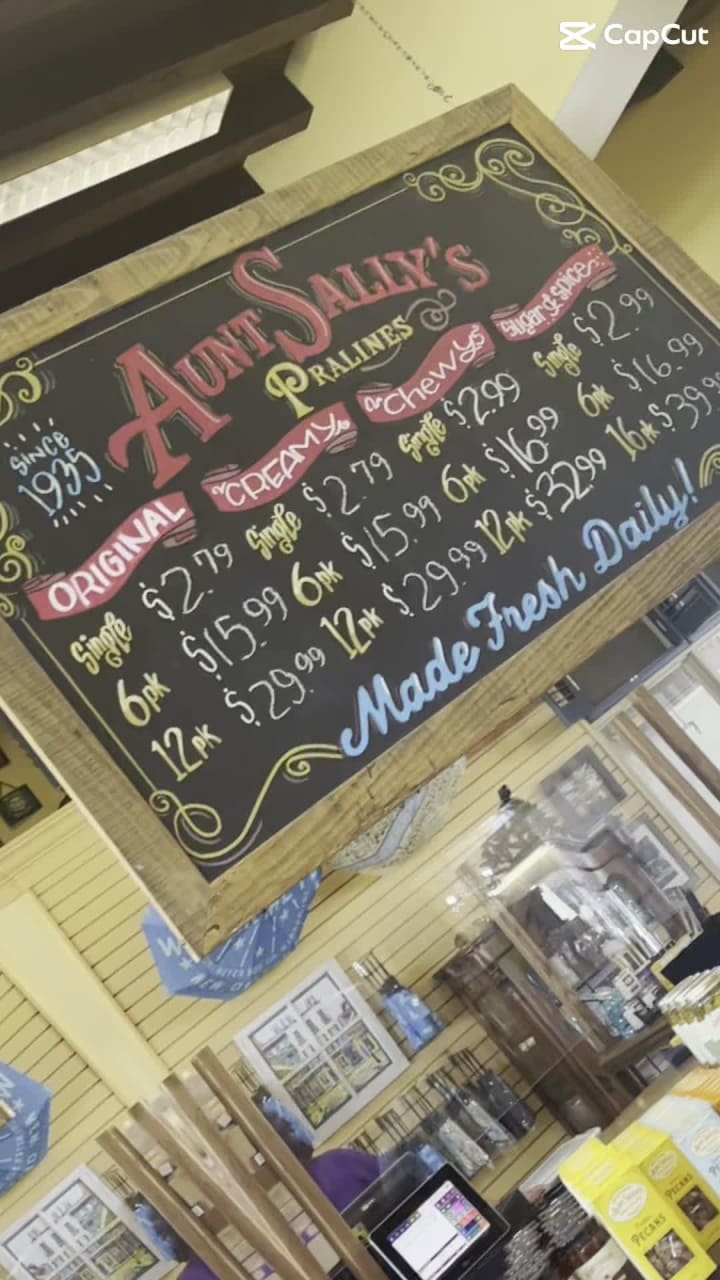 CapCut
AUNT SALLY'S
PRALINES
SINCE
1935
ORIGINAL
Single $2.79
6pk $15.99
12pk $29.99
CREAMY
Single $2.79
6pk $15.99
12pk $29.99
Chewys
Single $2.99
6pk $16.99
12pk $32.99
Sugar & Spice
Single $2.99
6pk $16.99
16pk $39.99
Made Fresh Daily!
PECANS
PECANS